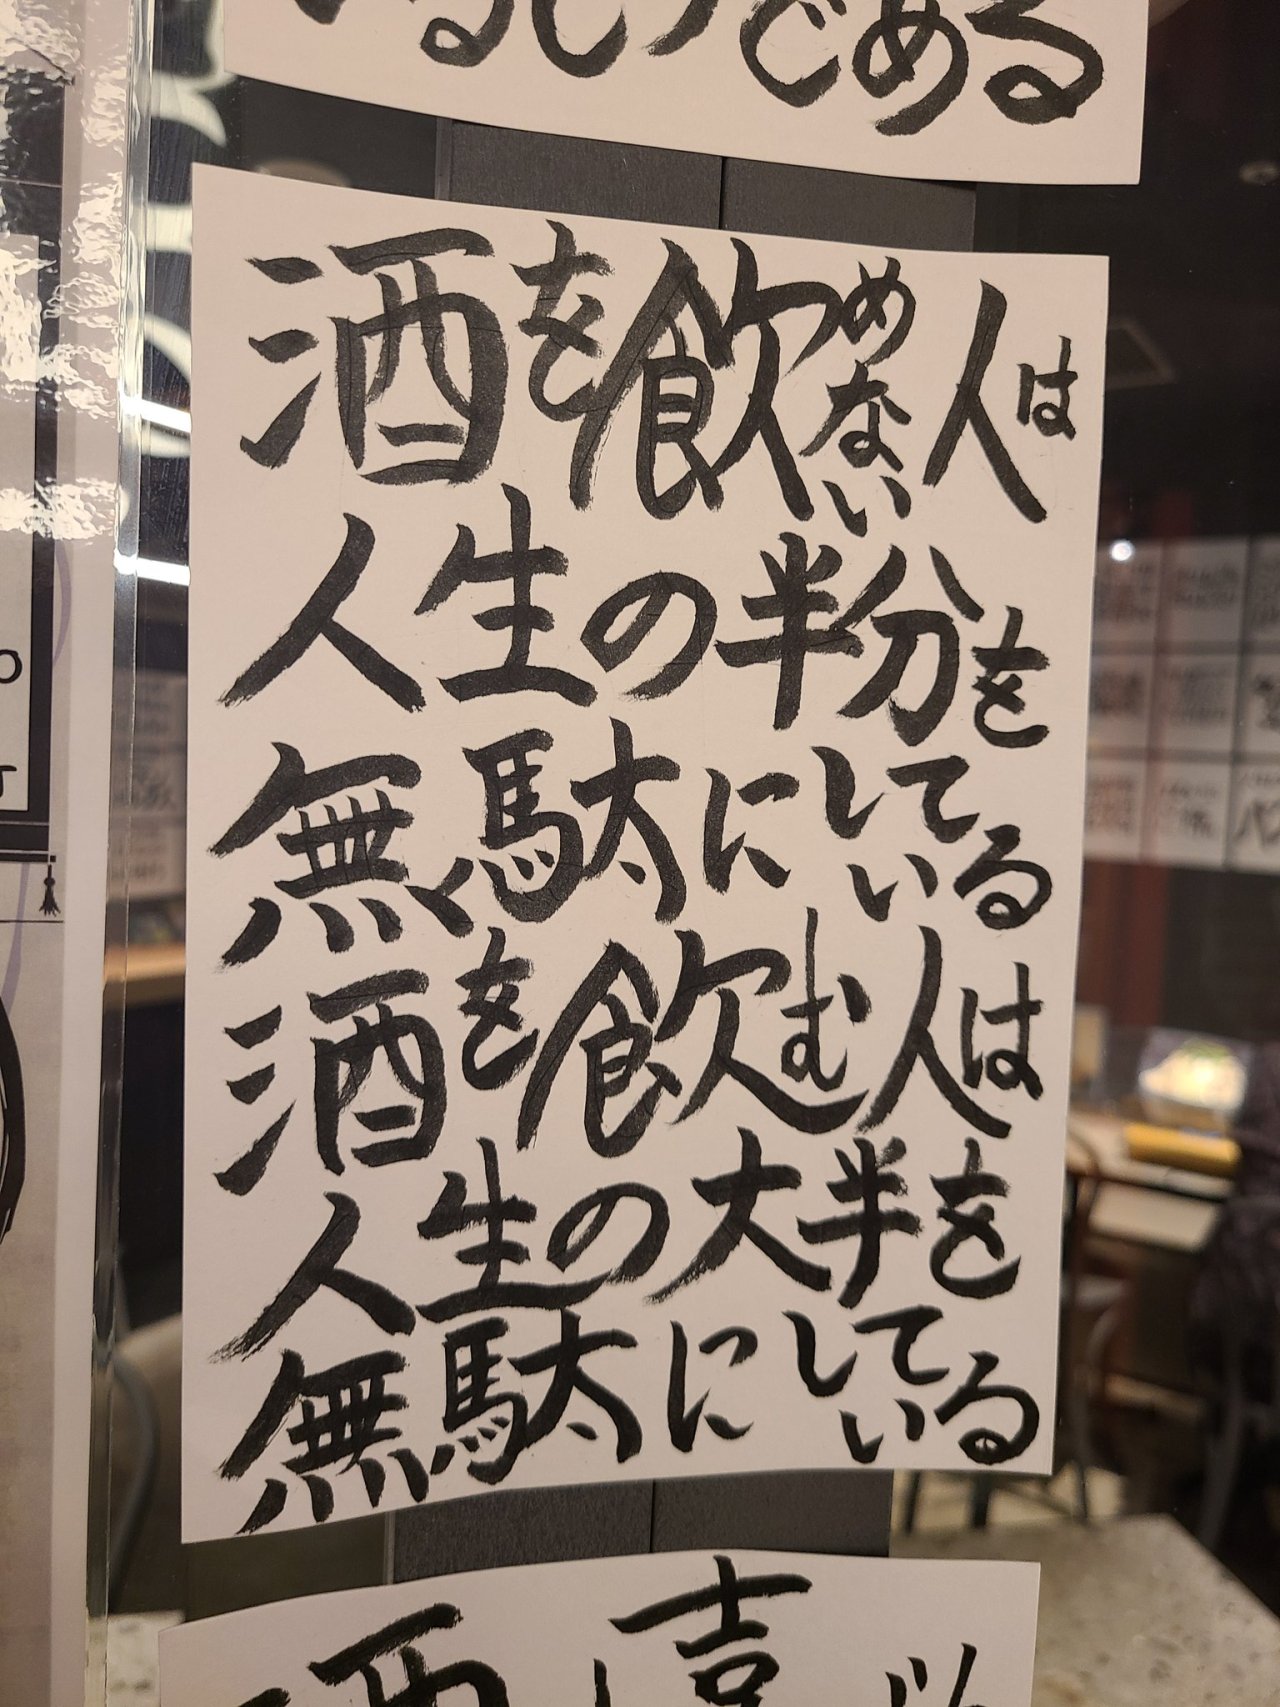 である
酒を飲めない人は
人生の半分を
無駄にしている
酒を飲む人は
人生の大半を
無駄にしている